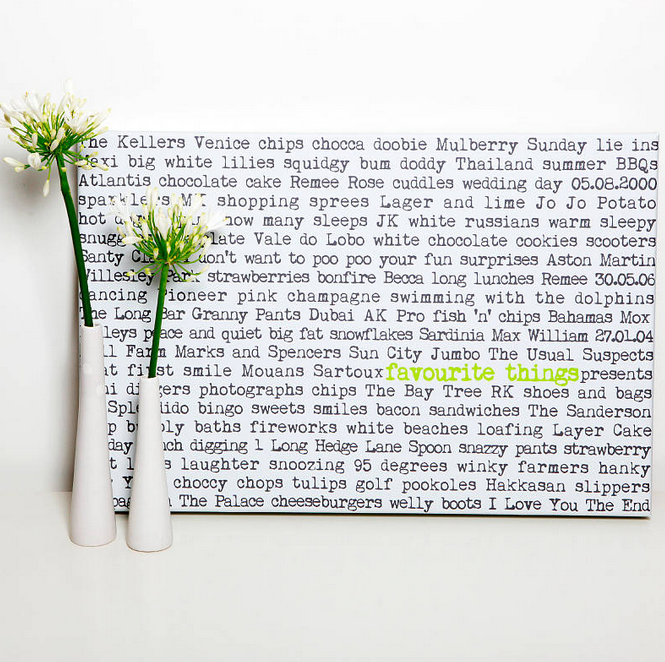 The Kellers Venice chips chocca doobie Mulberry Sunday lie ins
big white lilies squidgy bum doddy Thailand summer BBQs
Atlantis chocolate cake Remee Rose cuddles wedding day 05.08.2000
shopping sprees Lager and lime Jo Jo Potato
hot how many sleeps JK white russians warm sleepy
Vale do Lobo white chocolate cookies scooters
Santy don't want to poo poo your fun surprises Aston Martin
Willesley Park strawberries bonfire Becca long lunches Remee 30.05.06
dancing Pioneer pink champagne swimming with the dolphins
The Long Bar Granny Pants Dubai AK Pro fish 'n' chips Bahamas Mox
peace and quiet big fat snowflakes Sardinia Max William 27.01.04
Farm Marks and Spencers Sun City Jumbo The Usual Suspects
at first smile Mouans Sartoux favourite things presents
diggers photographs chips The Bay Tree RK shoes and bags
bingo sweets smiles bacon sandwiches The Sanderson
bubbly baths fireworks white beaches loafing Layer Cake
digging 1 Long Hedge Lane Spoon snazzy pants strawberry
laughter snoozing 95 degrees winky farmers hanky
choccy chops tulips golf pookoles Hakkasan slippers
The Palace cheeseburgers welly boots I Love You The End